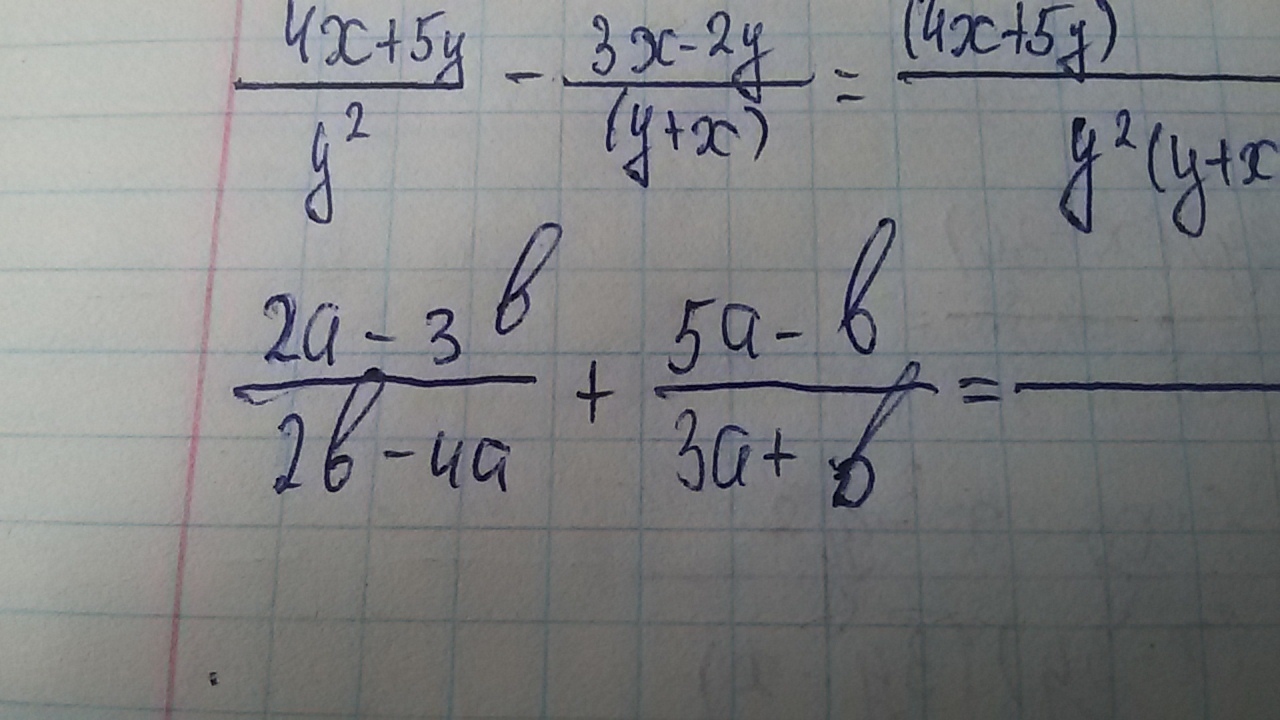 (4x+5y)/y² - (3x-2y)/(y+x) = (4x+5y)/y²(y+x
(2a-3b)/(2b-4a) + (5a-b)/(3a+b) =